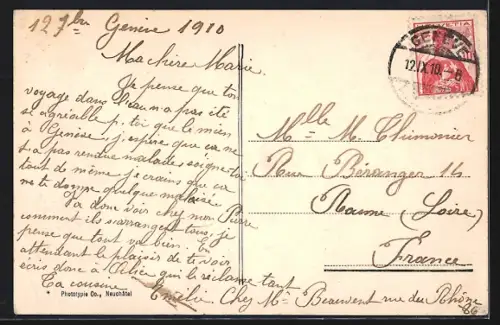 12 7bre Genève 1910
Ma chère Marie
Je pense que ton
voyage dans l'eau n'a pas été
si agréable p. toi que le mien
à Genèse, j'espère que ça ne
t'a pas rendue malade, soigne toi
tout de même je crains que ça
ne te donne quelque malaise
Va donc voir chez mon Pierre
comment ils s'arrangent tous, je
pense que tout va bien. En
attendant le plaisir de te voir
écris donc à Alice qui le réclame tant
Ta cousine Emélie Chez Mr Beauvent rue du Rhône
86
Phototypie Co., Neuchâtel
HELVETIA
GENÈVE
12.IX.10.-8
Mlle M. Chimonier
Rue Béranger 14
Roanne (Loire)
France